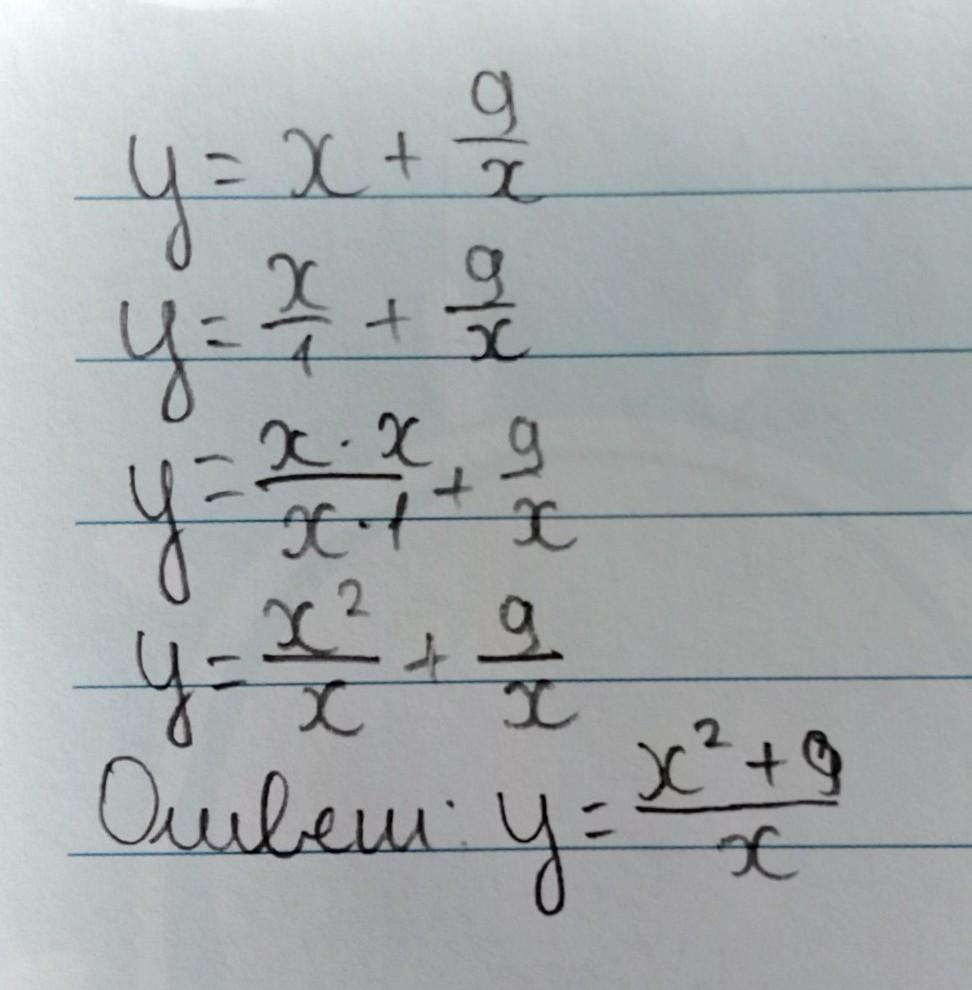 y = x + 9/x
y = x/1 + 9/x
y = x · x/x · 1 + 9/x
y = x²/x + 9/x
Ответ: y = x² + 9/x